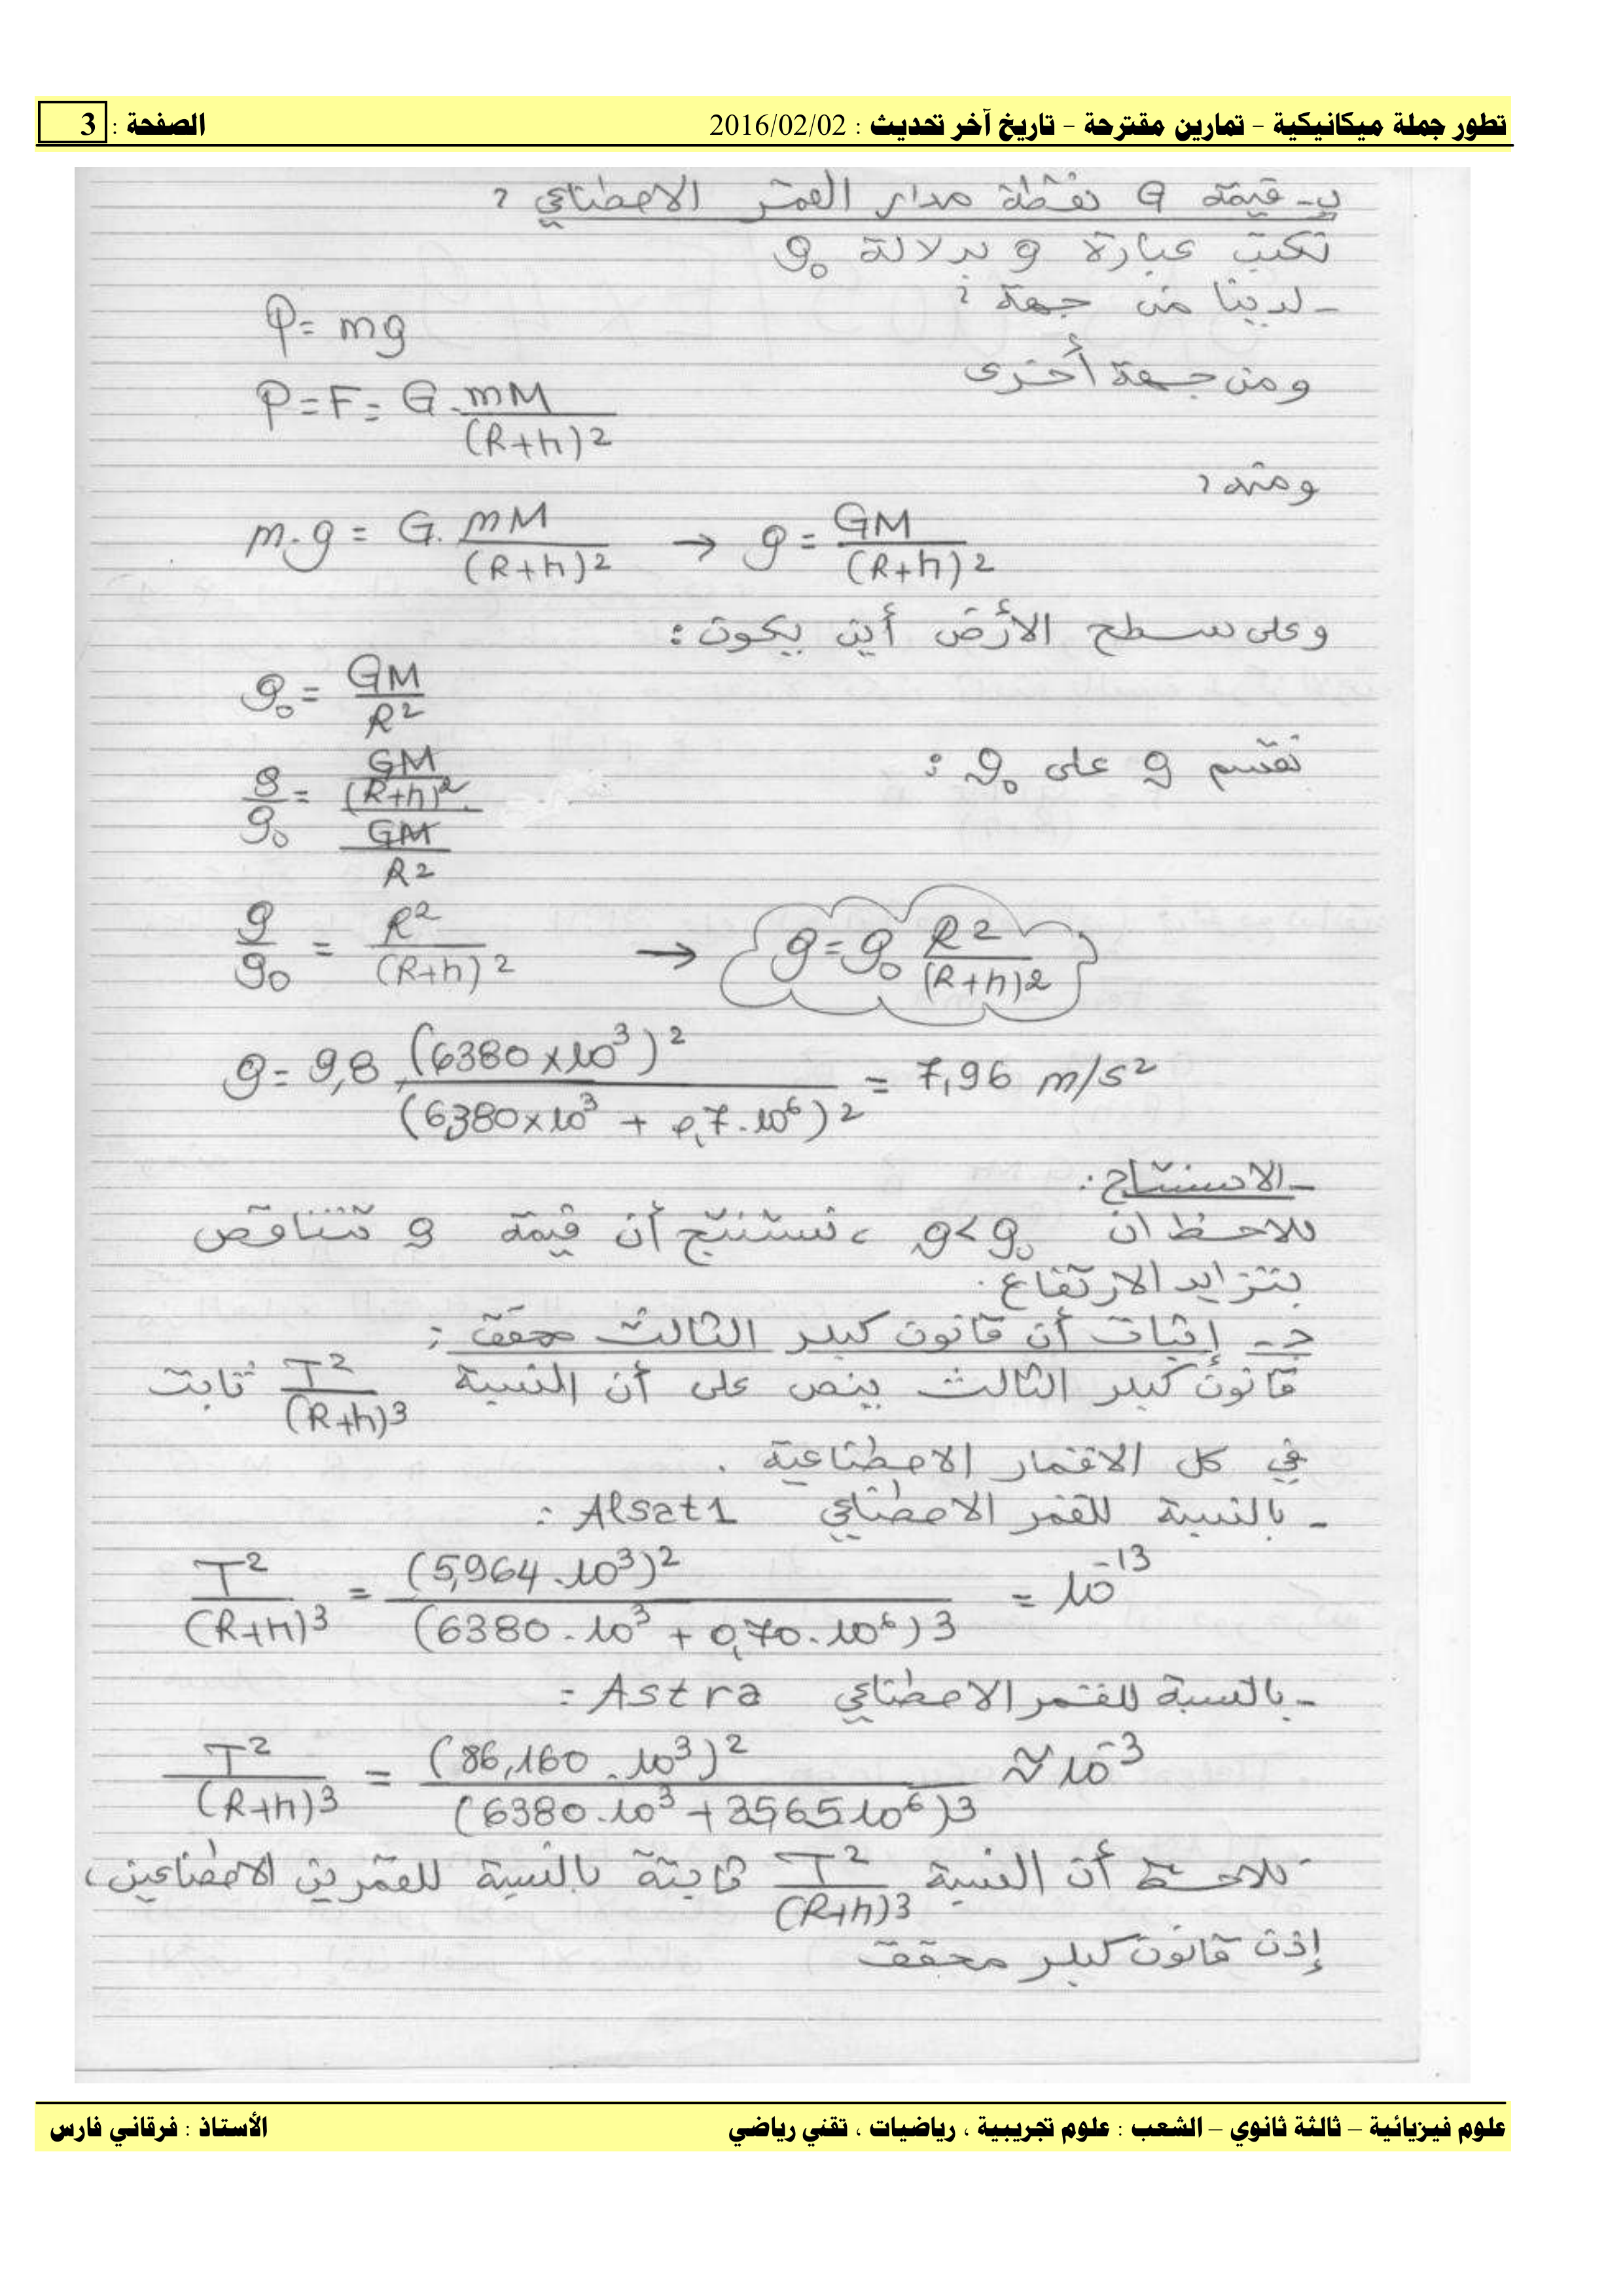 تطور جملة ميكانيكية - تمارين مقترحة - تاريخ آخر تحديث : 2016/02/02 الصفحة : 3
ب- قيمة g نقطة مدار القمر الاصطناعي :
نكتب عبارة g بدلالة g₀
- لدينا من جهة :
P = mg
ومن جهة أخرى
P = F = G · mM / (R+h)²
ومنه :
m·g = G · mM / (R+h)² → g = GM / (R+h)²
وعلى سطح الأرض أين يكون :
g₀ = GM / R²
نقسم g على g₀ :
g / g₀ = (GM / (R+h)²) / (GM / R²)
g / g₀ = R² / (R+h)² → g = g₀ R² / (R+h)²
g = 9,8 · (6380×10³)² / (6380×10³ + 0,7·10⁶)² = 7,96 m/s²
- الاستنتاج :
نلاحظ ان g < g₀ ، نستنتج أن قيمة g تتناقص
بتزايد الارتفاع .
ج- إثبات أن قانون كبلر الثالث محقق :
قانون كبلر الثالث ينص على أن النسبة T² / (R+h)³ ثابت
في كل الاقمار الاصطناعية .
- بالنسبة للقمر الاصطناعي Alsat1 :
T² / (R+h)³ = (5,964·10³)² / (6380·10³ + 0,70·10⁶)³ = 10⁻¹³
- بالنسبة للقمر الاصطناعي Astra :
T² / (R+h)³ = (86,160·10³)² / (6380·10³ + 35,65 10⁶)³ ≈ 10⁻³
نلاحظ أن النسبة T² / (R+h)³ ثابتة بالنسبة للقمرين الاصطناعين ،
إذن قانون كبلر محقق
علوم فيزيائية – ثالثة ثانوي – الشعب : علوم تجريبية ، رياضيات ، تقني رياضي الأستاذ : فرقاني فارس